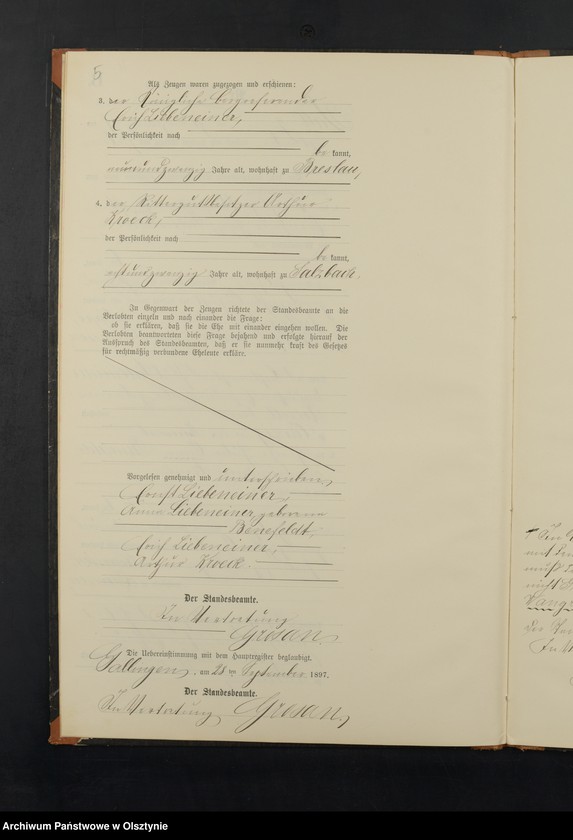 5
Als Zeugen waren zugezogen und erschienen:
3. der Königliche
Erich Liebeneiner,
der Persönlichkeit nach
be kannt,
neunundzwanzig Jahre alt, wohnhaft zu Breslau,
4. der Rittergutsbesitzer Arthur
Kroeck,
der Persönlichkeit nach
be kannt,
achtundzwanzig Jahre alt, wohnhaft zu Salzbach.
In Gegenwart der Zeugen richtete der Standesbeamte an die
Verlobten einzeln und nach einander die Frage:
ob sie erklären, daß sie die Ehe mit einander eingehen wollen. Die
Verlobten beantworteten diese Frage bejahend und erfolgte hierauf der
Ausspruch des Standesbeamten, daß er sie nunmehr kraft des Gesetzes
für rechtmäßig verbundene Eheleute erkläre.
Vorgelesen genehmigt und unterschrieben
Ernst Liebeneiner
Anna Liebeneiner, geborene
Bonsfeldt,
Erich Liebeneiner,
Arthur Kroeck.
Der Standesbeamte.
In Vertretung
Grosan
Die Uebereinstimmung mit dem Hauptregister beglaubigt.
Gallingen, am 28 ten September 1897.
Der Standesbeamte.
In Vertretung Grosan
In
der
In
Archiwum Państwowe w Olsztynie